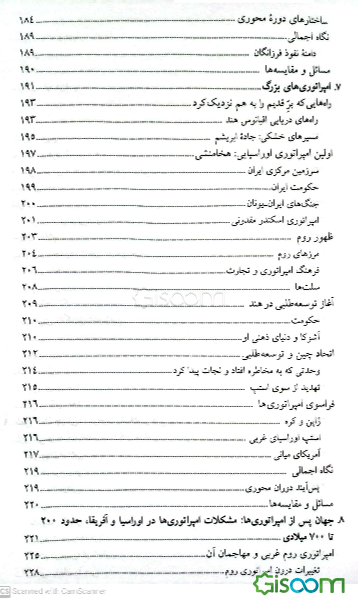 ساختارهای دورهٔ محوری ... ۱۸۴
نگاه اجمالی ... ۱۸۹
دامنهٔ نفوذ فرزانگان ... ۱۸۹
مسائل و مقایسه‌ها ... ۱۹۰
۷. امپراتوری‌های بزرگ ... ۱۹۱
راه‌هایی که بر قدیم را به هم نزدیک کرد ... ۱۹۳
راه‌های دریایی اقیانوس هند ... ۱۹۳
مسیرهای خشکی: جادهٔ ابریشم ... ۱۹۵
اولین امپراتوری اوراسیایی: هخامنشی ... ۱۹۷
سرزمین مرکزی ایران ... ۱۹۸
حکومت ایران ... ۱۹۹
جنگ‌های ایران-یونان ... ۲۰۰
امپراتوری اسکندر مقدونی ... ۲۰۱
ظهور روم ... ۲۰۳
مرزهای روم ... ۲۰۴
فرهنگ امپراتوری و تجارت ... ۲۰۶
سلت‌ها ... ۲۰۸
آغاز توسعه‌طلبی در هند ... ۲۰۹
حکومت ... ۲۱۰
آشوکا و دنیای ذهنی او ... ۲۱۰
اتحاد چین و توسعه‌طلبی ... ۲۱۲
وحدتی که به مخاطره افتاد و نجات پیدا کرد ... ۲۱۴
تهدید از سوی استپ ... ۲۱۵
فراسوی امپراتوری‌ها ... ۲۱۶
ژاپن و کره ... ۲۱۶
استپ اوراسیای غربی ... ۲۱۶
آمریکای میانی ... ۲۱۷
نگاه اجمالی ... ۲۱۹
پس‌آیند دوران محوری ... ۲۱۹
مسائل و مقایسه‌ها ... ۲۲۰
۸. جهان پس از امپراتوری‌ها: مشکلات امپراتوری‌ها در اوراسیا و آفریقا، حدود ۲۰۰
تا ۷۰۰ میلادی ... ۲۲۱
امپراتوری روم غربی و مهاجمان آن ... ۲۲۵
تغییرات درون امپراتوری روم ... ۲۲۸
Gisoom
CS Scanned with CamScanner
Gisoom